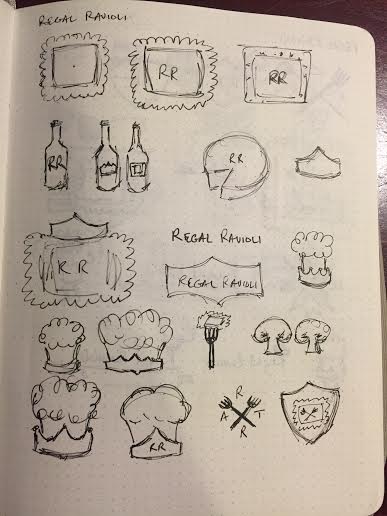 REGAL RAVIOLI
RR
RR
RR
RR
RR
REGAL RAVIOLI
REGAL RAVIOLI
R
A T
R
RR